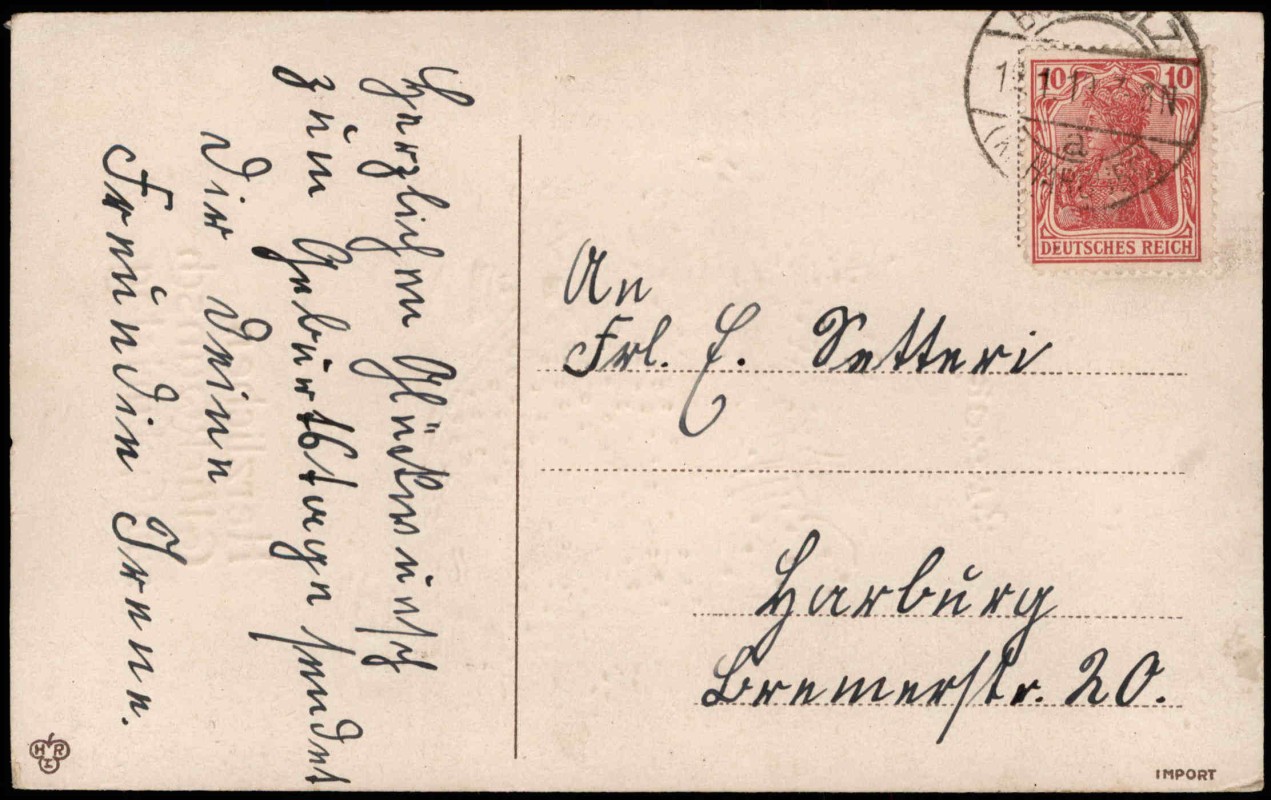 Herzlichen Glückwunsch
zum Geburtstage sendet
Dir Deine
Freundin Irene.
An
Frl. E. Setteri
Harburg
Bremerstr. 20.
10 10
DEUTSCHES REICH
a
HRI
IMPORT